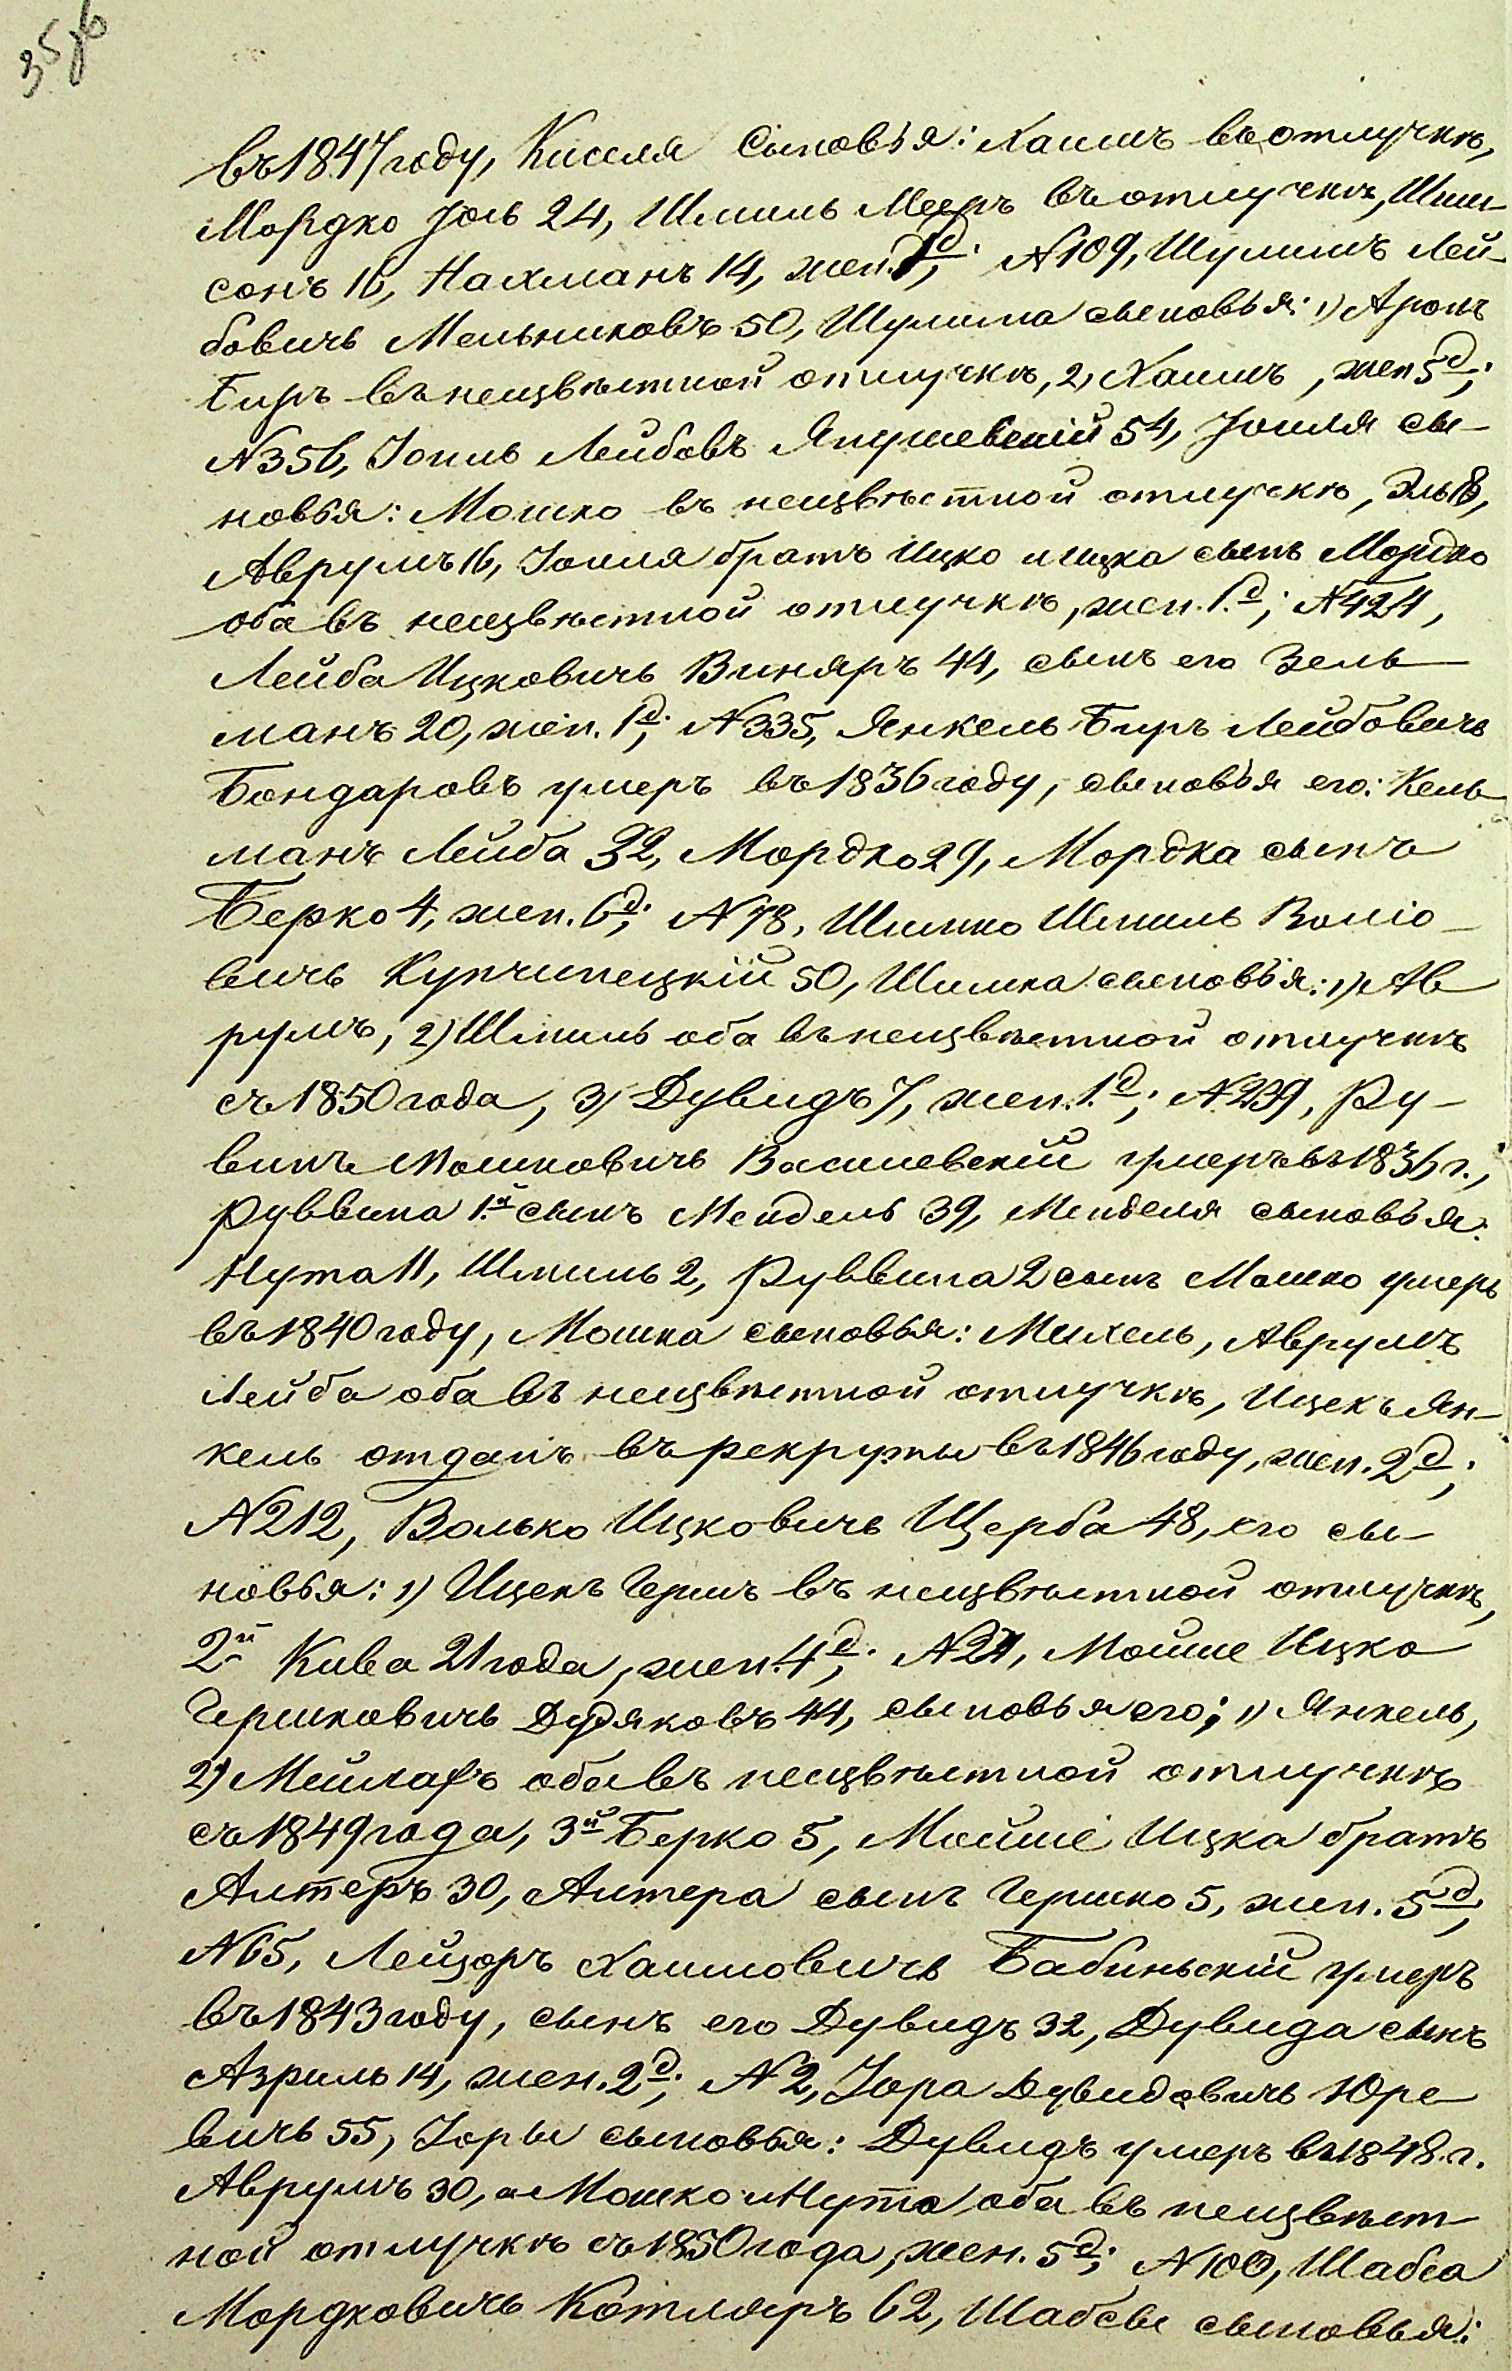 35 об
въ 1847 году, Киселя Сыновья: Хаимъ въ отлучкѣ,
Мордко Іось 24, Шмиль Мееръ въ отлучкѣ, Шим-
сонъ 16, Нахманъ 14, жен. 1 д; N 109, Шулимъ Лей-
бовичъ Мельниковъ 50, Шулима сыновья: 1) Аронъ
Биръ въ неизвѣстной отлучкѣ, 2) Хаимъ, жен 5 д;
N 356, Іоиль Лейбовъ Япушевскій 54, Іоиля сы-
новья: Мошко въ неизвѣстной отлучкѣ, Эль 18,
Аврумъ 16, Іоиля братъ Ицко и Ицка сынъ Мордко
оба въ неизвѣстной отлучкѣ, жен. 1. д; N 424,
Лейба Ицковичъ Виняръ 44, сынъ его Зель-
манъ 20, жен. 1 д; N 335, Янкель Биръ Лейбовичъ
Бондаровъ умеръ въ 1836 году, сыновья его: Кель-
манъ Лейба 32, Мордко 29, Мордка сынъ
Берко 4, жен. 6 д; N 78, Шимко Шмиль Воліо-
вичъ Купчинецкій 50, Шимка сыновья: 1) Ав-
румъ, 2) Шмиль оба въ неизвѣстной отлучкѣ
съ 1850 года, 3) Дувидъ 7, жен. 1. д; N 239, Ру-
винъ Мошковичъ Василевскій умеръ въ 1836 г.;
Руввина 1й сынъ Мендель 39, Менделя сыновья:
Нута 11, Шмиль 2, Руввина 2 сынъ Мошко умеръ
въ 1840 году, Мошка сыновья: Михель, Аврумъ
Лейба оба въ неизвѣстной отлучкѣ, Ицекъ Ян-
кель отданъ въ рекруты въ 1846 году, жен. 2 д;
N 212, Волько Ицковичъ Щерба 48, его сы-
новья: 1) Ицекъ Гершъ въ неизвѣстной отлучкѣ,
2й Кива 21 года, жен. 4 д; N 24, Мойше Ицко
Гершковичъ Дудяковъ 44, сыновья его; 1) Янкель,
2) Мейлахъ оба въ неизвѣстной отлучкѣ
съ 1849 года, 3й Берко 5, Мойше Ицка братъ
Алтеръ 30, Алтера сынъ Гершко 5, жен. 5 д;
N 65, Лейзоръ Хаимовичъ Бабиньскій умеръ
въ 1843 году, сынъ его Дувидъ 32, Дувида сынъ
Азриль 14, жен. 2 д; N 2, Іора Дувидовичъ Юре-
вичъ 55, Іоры сыновья: Дувидъ умеръ въ 1848. г.
Аврумъ 30, а Мошко и Нута оба въ неизвѣст-
ной отлучкѣ съ 1850 года, жен. 5 д; N 100, Шабса
Мордковичъ Котляръ 62, Шабсы сыновья: